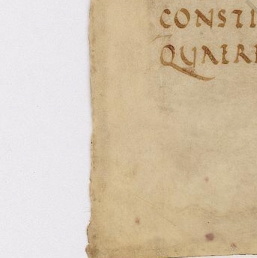 CONSTI
QUAERE